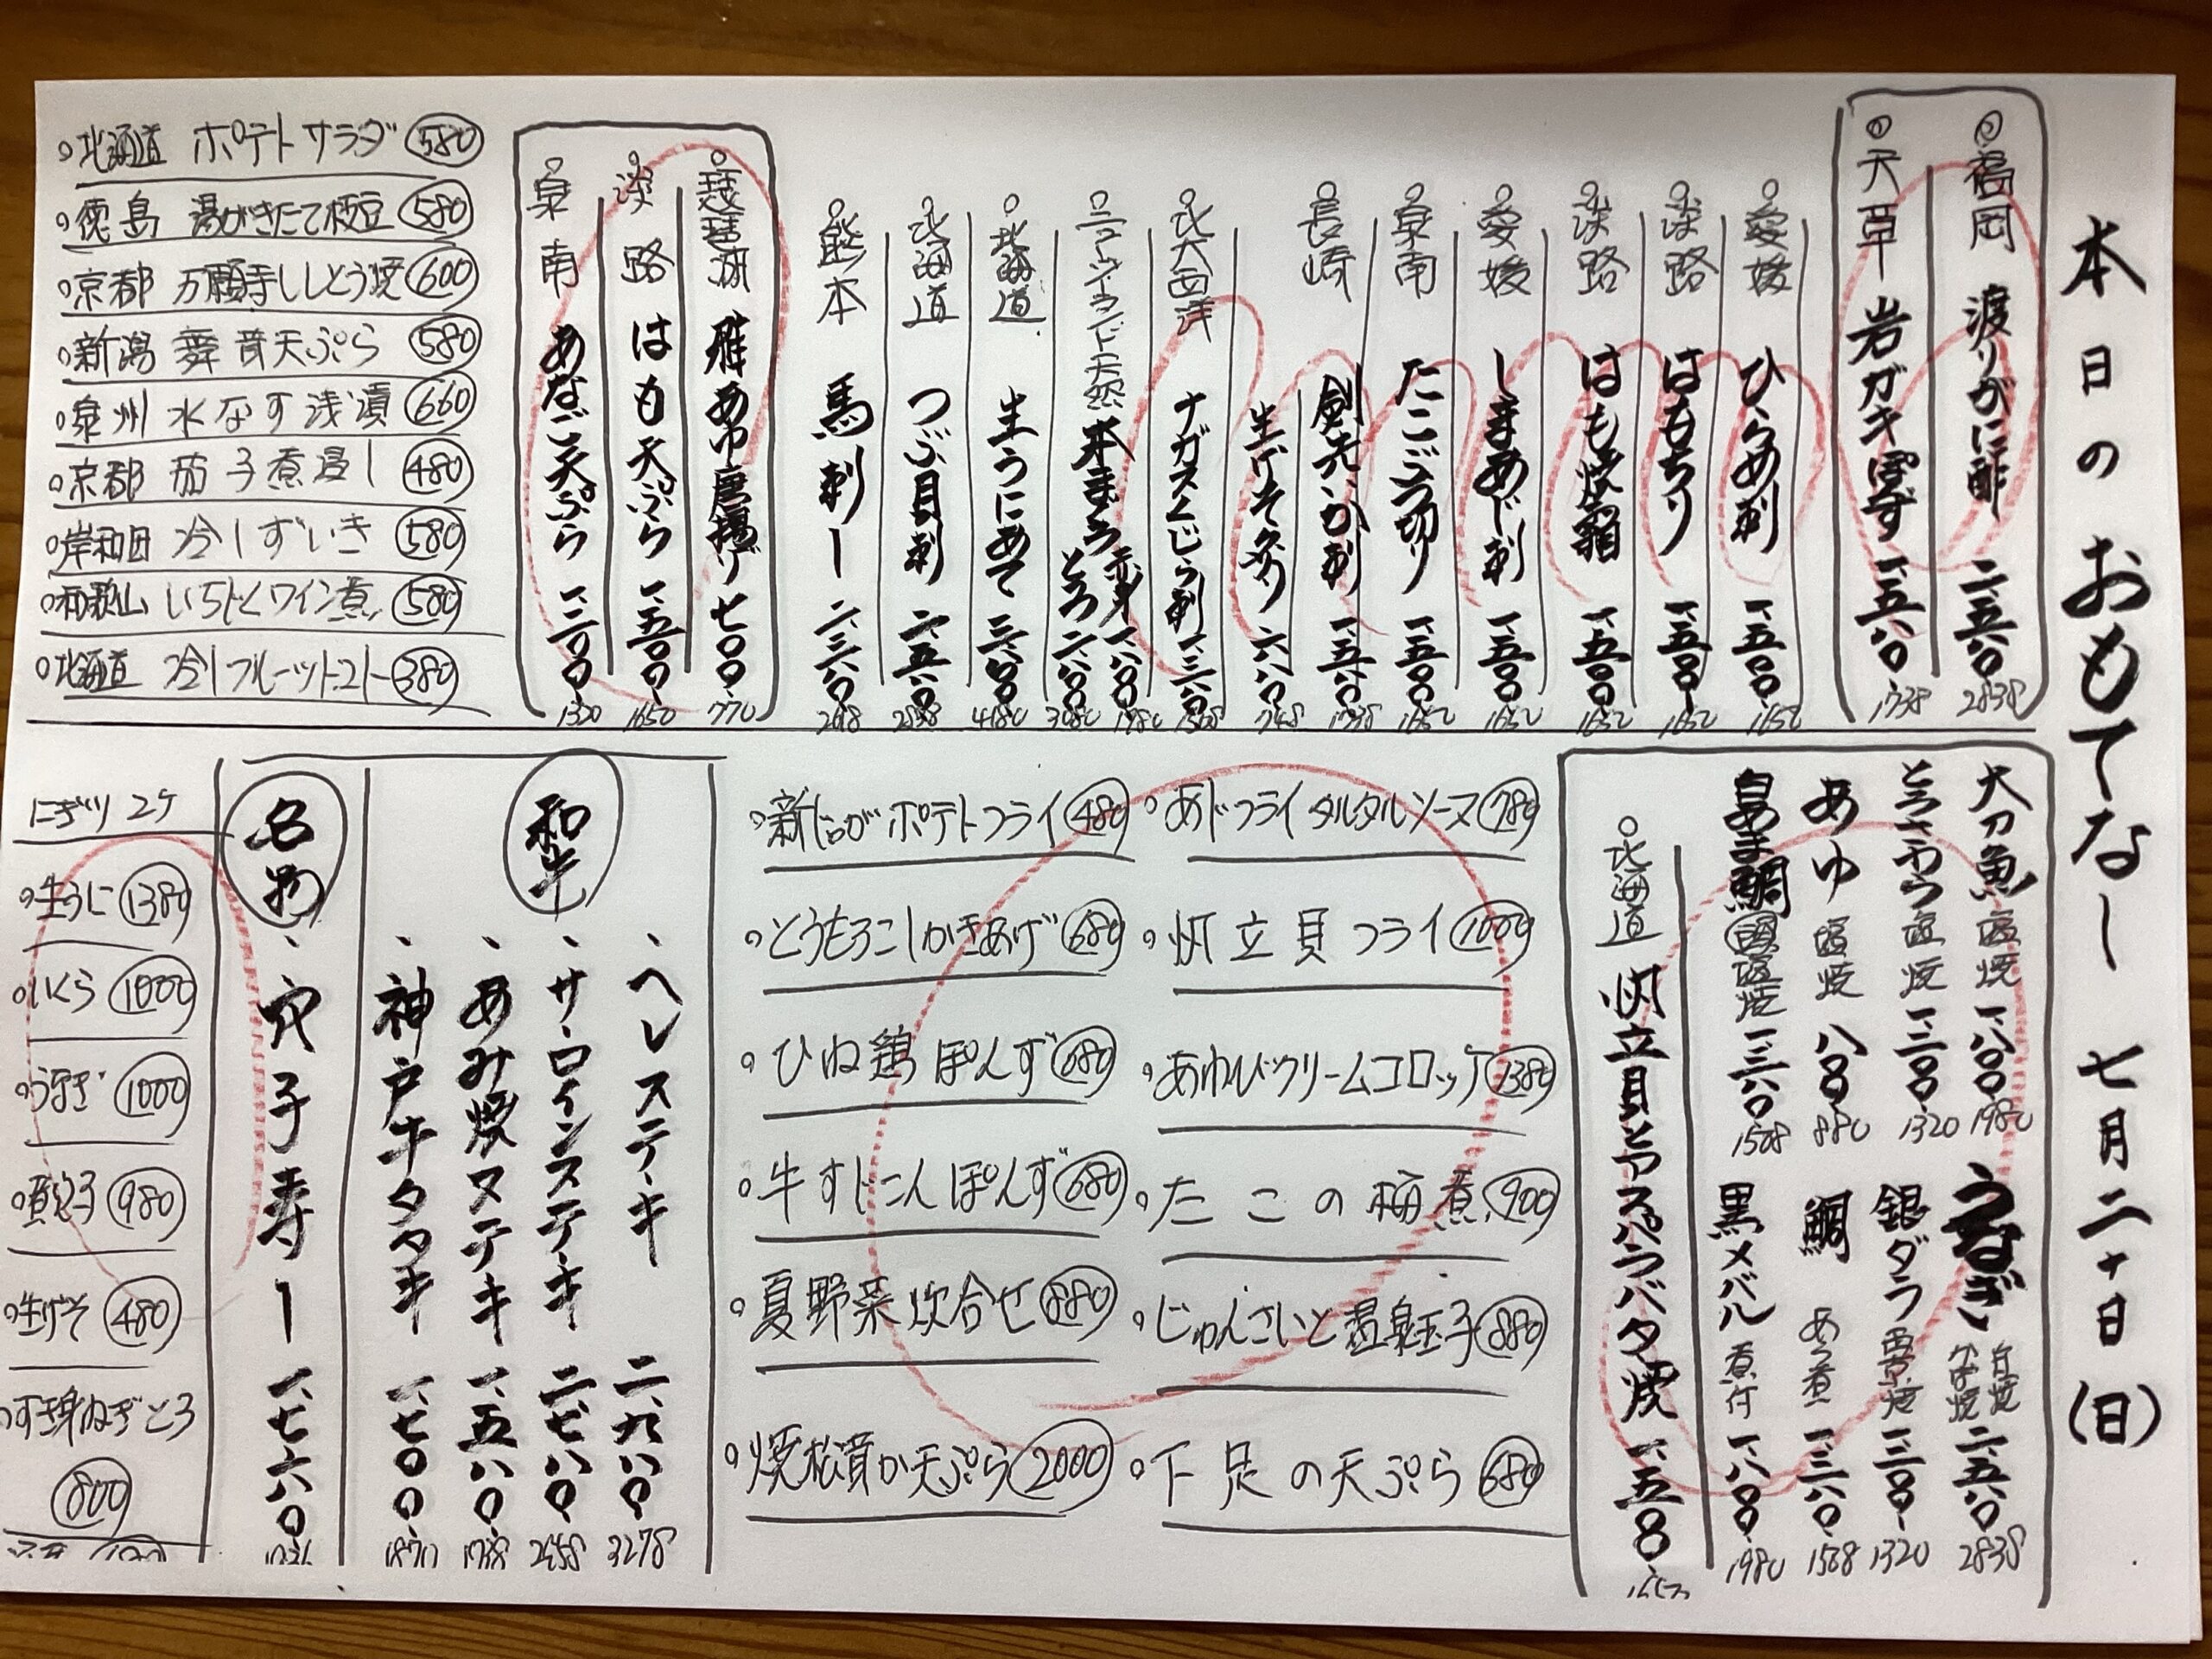 本日のおもてなし 七月二十日(日)
福岡 渡りがに酢 二、五八〇 2838
天草 岩ガキぽず 一、五八〇 1738
愛媛 ひらめ刺 一、五〇〇 1650
淡路 はもちり 一、五〇〇 1650
淡路 はも焼霜 一、五〇〇 1650
愛媛 しまあじ刺 一、五〇〇 1650
泉南 たこぶつ切り 一、五〇〇 1650
長崎 剣先いか刺 一、五八〇 1738
生げそ炙り 六八〇 748
北大西洋 ナガスくじら刺 一、三八〇 1518
ニュージーランド天然 本まぐろ 赤身 一、八〇〇 1980
とろ 二、八〇〇 3080
北海道 生うにあて 三、八〇〇 4180
北海道 つぶ貝刺 二、五八〇 2838
熊本 馬刺し 二、三八〇 2618
琵琶湖 稚あゆ唐揚げ 七〇〇 770
淡路 はも天ぷら 一、五〇〇 1650
泉南 あなご天ぷら 一、二〇〇 1320
北海道 ポテトサラダ 580
徳島 湯がきたて枝豆 580
京都 万願寺ししとう焼 600
新潟 舞茸天ぷら 580
泉州 水なす浅漬 660
京都 茄子煮浸し 480
岸和田 冷しずいき 580
和歌山 いちじくワイン煮 580
北海道 冷しフルーツトマト 380
太刀魚 塩焼 一、八〇〇 1980
とろさわら 塩焼 一、二〇〇 1320
あゆ 塩焼 八〇〇 880
白あま鯛 塩焼 一、三八〇 1518
うなぎ 白焼 かば焼 二、五八〇 2838
銀ダラ 西京焼 一、二〇〇 1320
鯛 あら煮 一、三八〇 1518
黒メバル 煮付 一、八〇〇 1980
北海道 帆立貝とアスパラバター焼 一、五〇〇
あじフライタルタルソース 780
帆立貝フライ 1000
あわびクリームコロッケ 1380
たこの梅煮 900
じゅんさいと温泉玉子 880
下足の天ぷら 680
新じゃがポテトフライ 480
とうもろこしかきあげ 680
ひね鶏ぽんず 680
牛すじこんぽんず 680
夏野菜炊合せ 880
焼松茸か天ぷら 2000
和牛
、ヘレステーキ 二、九八〇 3278
、サーロインステーキ 二、七八〇
、あみ焼ステーキ 一、五八〇 1738
、神戸牛タタキ 一、七〇〇 1870
名物
、穴子寿し 一、七六〇
にぎり 2ケ
生うに 1380
いくら 1000
うなぎ 1000
煮穴子 980
生げそ 480
すき身ねぎとろ
800